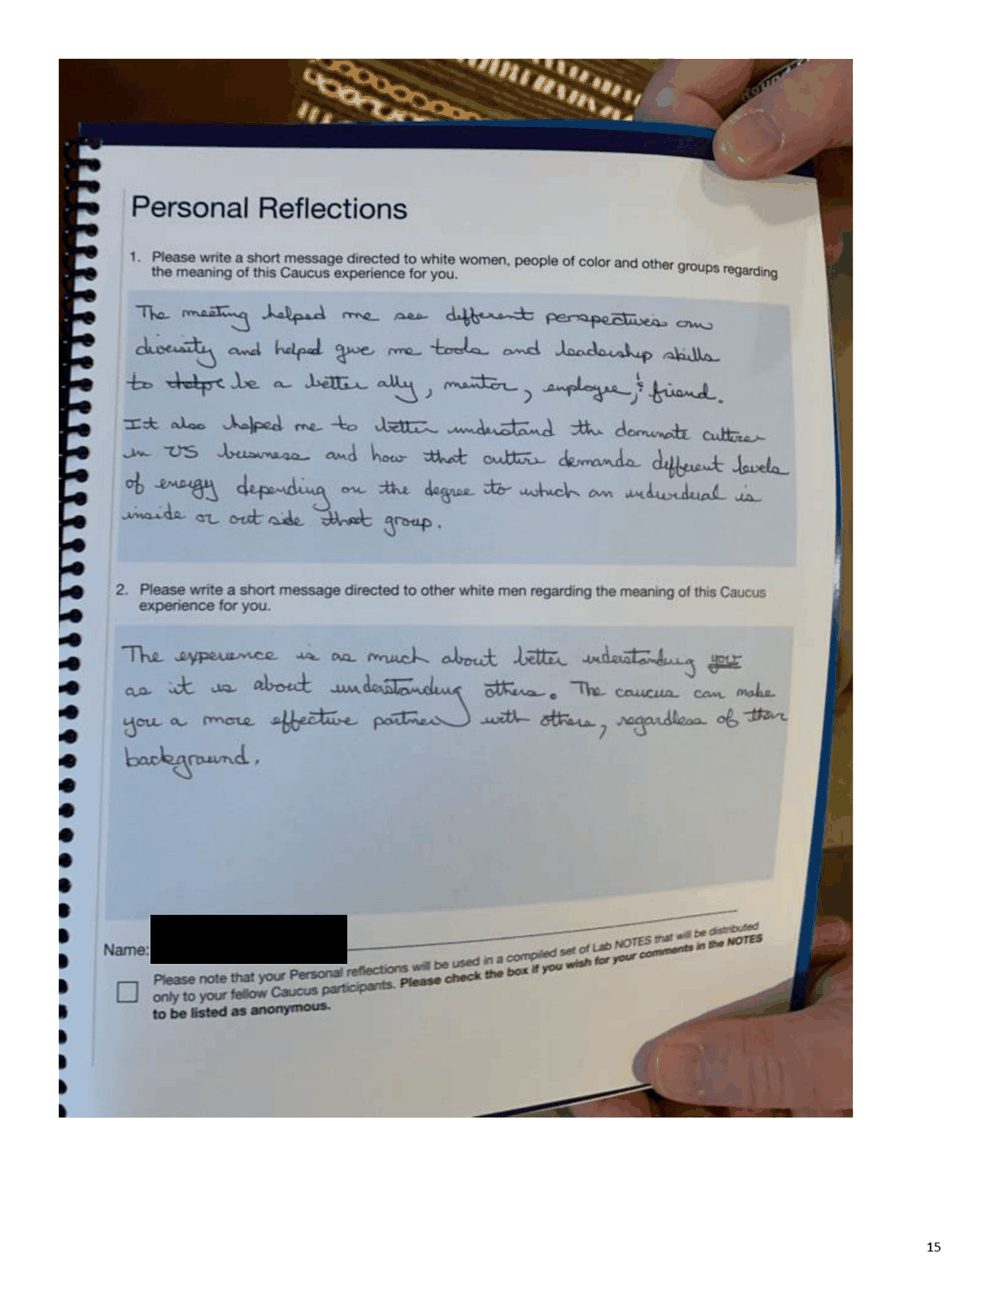 Personal Reflections
1. Please write a short message directed to white women, people of color and other groups regarding
the meaning of this Caucus experience for you.
The meeting helped me see different perspectives on
diversity and helped give me tools and leadership skills
to be a better ally, mentor, employee, & friend.
It also helped me to better understand the dominate culture
in US business and how that culture demands different levels
of energy depending on the degree to which an individual is
inside or out side that group.
2. Please write a short message directed to other white men regarding the meaning of this Caucus
experience for you.
The experience is as much about better understanding you
as it is about understanding others. The caucus can make
you a more effective partner with others, regardless of their
background.
Name:
Please note that your Personal reflections will be used in a compiled set of Lab NOTES that will be distributed
only to your fellow Caucus participants. Please check the box if you wish for your comments in the NOTES
to be listed as anonymous.
15